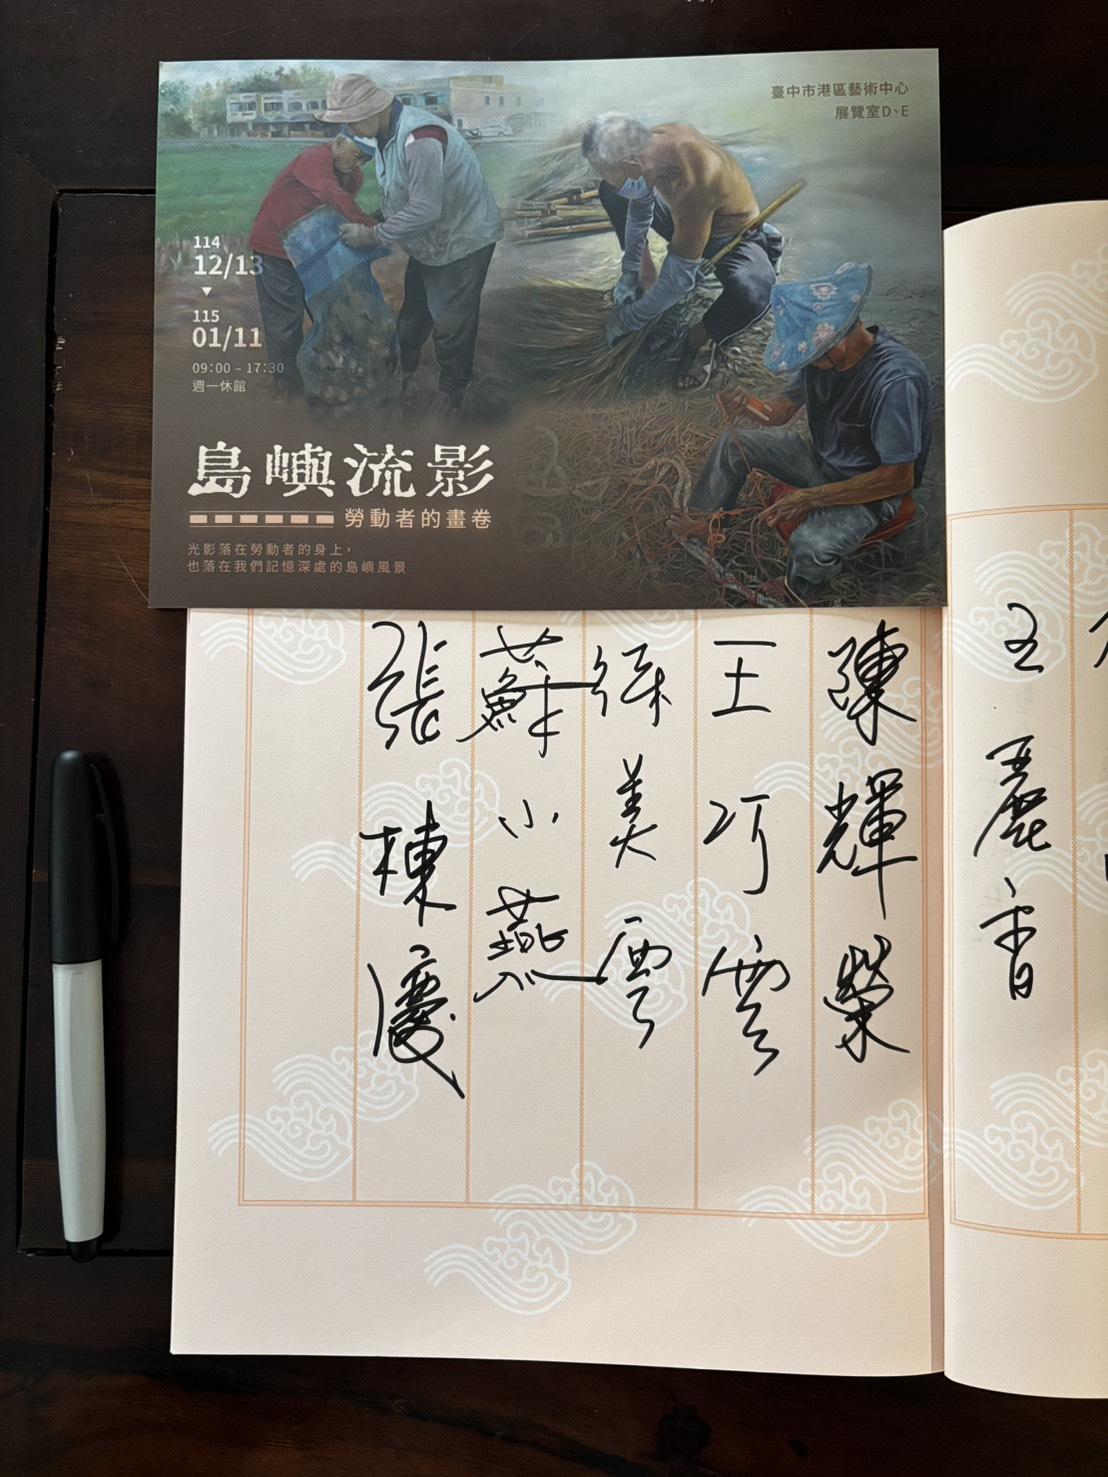 臺中市港區藝術中心
展覽室D、E
114
12/13
▼
115
01/11
09:00 – 17:30
週一休館
島嶼流影
勞動者的畫卷
光影落在勞動者的身上，
也落在我們記憶深處的島嶼風景
王麗香
陳輝榮
王巧雲
孫美雲
蘇小燕
張棟慶